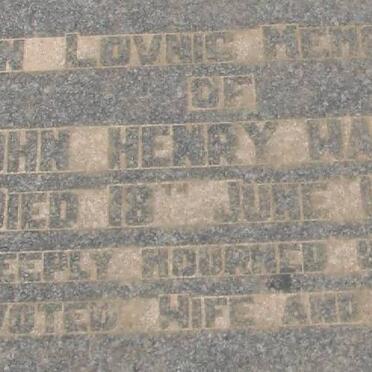 N LOVING MEMO
OF
OHN HENRY WA
DIED 18TH JUNE
DEEPLY MOURNED
VOTED WIFE AND